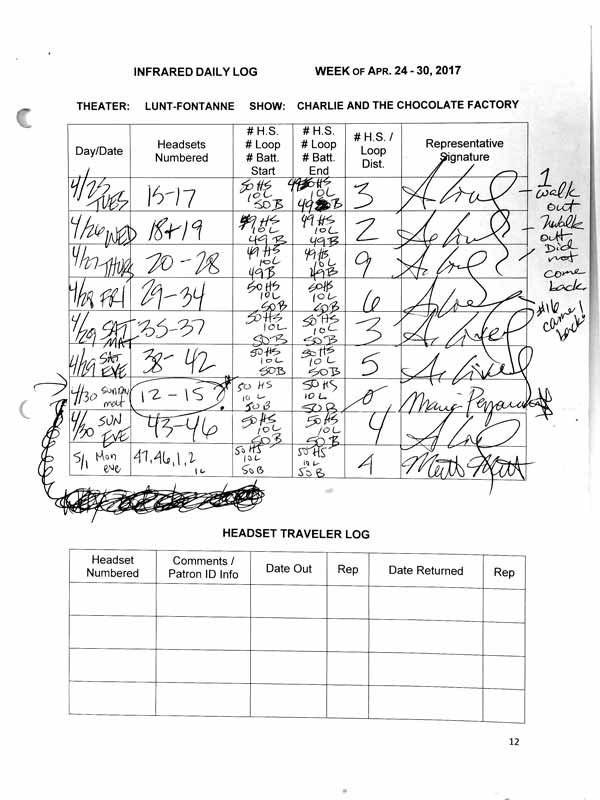 INFRARED DAILY LOG WEEK OF APR. 24 - 30, 2017
THEATER: LUNT-FONTANNE SHOW: CHARLIE AND THE CHOCOLATE FACTORY
Day/Date Headsets Numbered # H.S. # Loop # Batt. Start # H.S. # Loop # Batt. End # H.S. / Loop Dist. Representative Signature
4/25 TUES 15-17 50 HS 10L 50B 10L 3
1 walk out
4/26 WED 18+19 49 HS 10L 49B 49 HS 10L 49B 2
2 walk out
4/27 THURS 20-28 49 HS 10L 49B 49 HS 10L 49B 9
Did not come back
4/28 FRI 29-34 50 HS 10L 50B 50 HS 10L 50B 6
#16 came back!
4/29 SAT MAT 35-37 50 HS 10L 50B 50 HS 10L 50B 3
4/29 SAT EVE 38-42 50 HS 10L 50B 50 HS 10L 50B 5
4/30 SUNDAY mat 12-15? 50 HS 10L 50B 50 HS 10L 50B 0
4/30 SUN EVE 43-46 50 HS 10L 50B 50 HS 10L 50B 4
5/1 Mon eve 47,46,1,2 50 HS 10L 50B 50 HS 10L 50B 4
HEADSET TRAVELER LOG
Headset Numbered Comments / Patron ID Info Date Out Rep Date Returned Rep
12